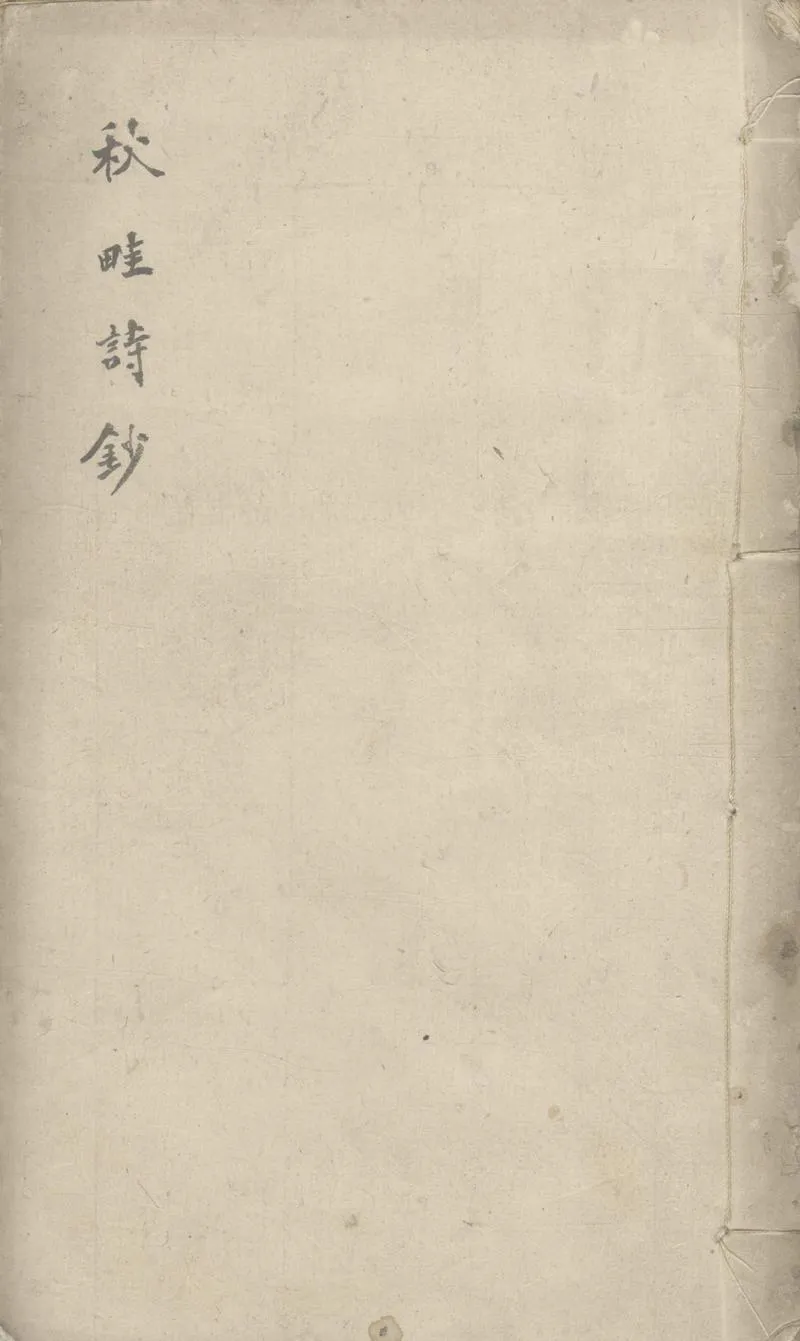 秋畦詩鈔